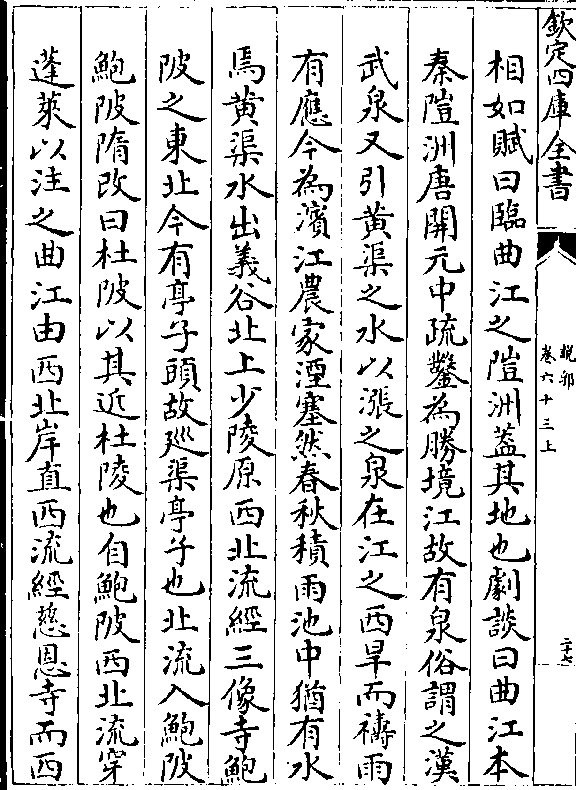 欽定四庫全書
說郛
卷六十三上
二十七
相如賦曰臨曲江之隑洲蓋其地也劇談曰曲江本
秦隑洲唐開元中疏鑿為勝境江故有泉俗謂之漢
武泉又引黄渠之水以漲之泉在江之西旱而禱雨
有應今為濱江農家湮塞然春秋積雨池中猶有水
焉黄渠水出義谷北上少陵原西北流經三像寺鮑
陂之東北今有亭子頭故廵渠亭子也北流入鮑陂
鮑陂隋改曰杜陂以其近杜陵也自鮑陂西北流穿
蓬萊以注之曲江由西北岸直西流經慈恩寺而西